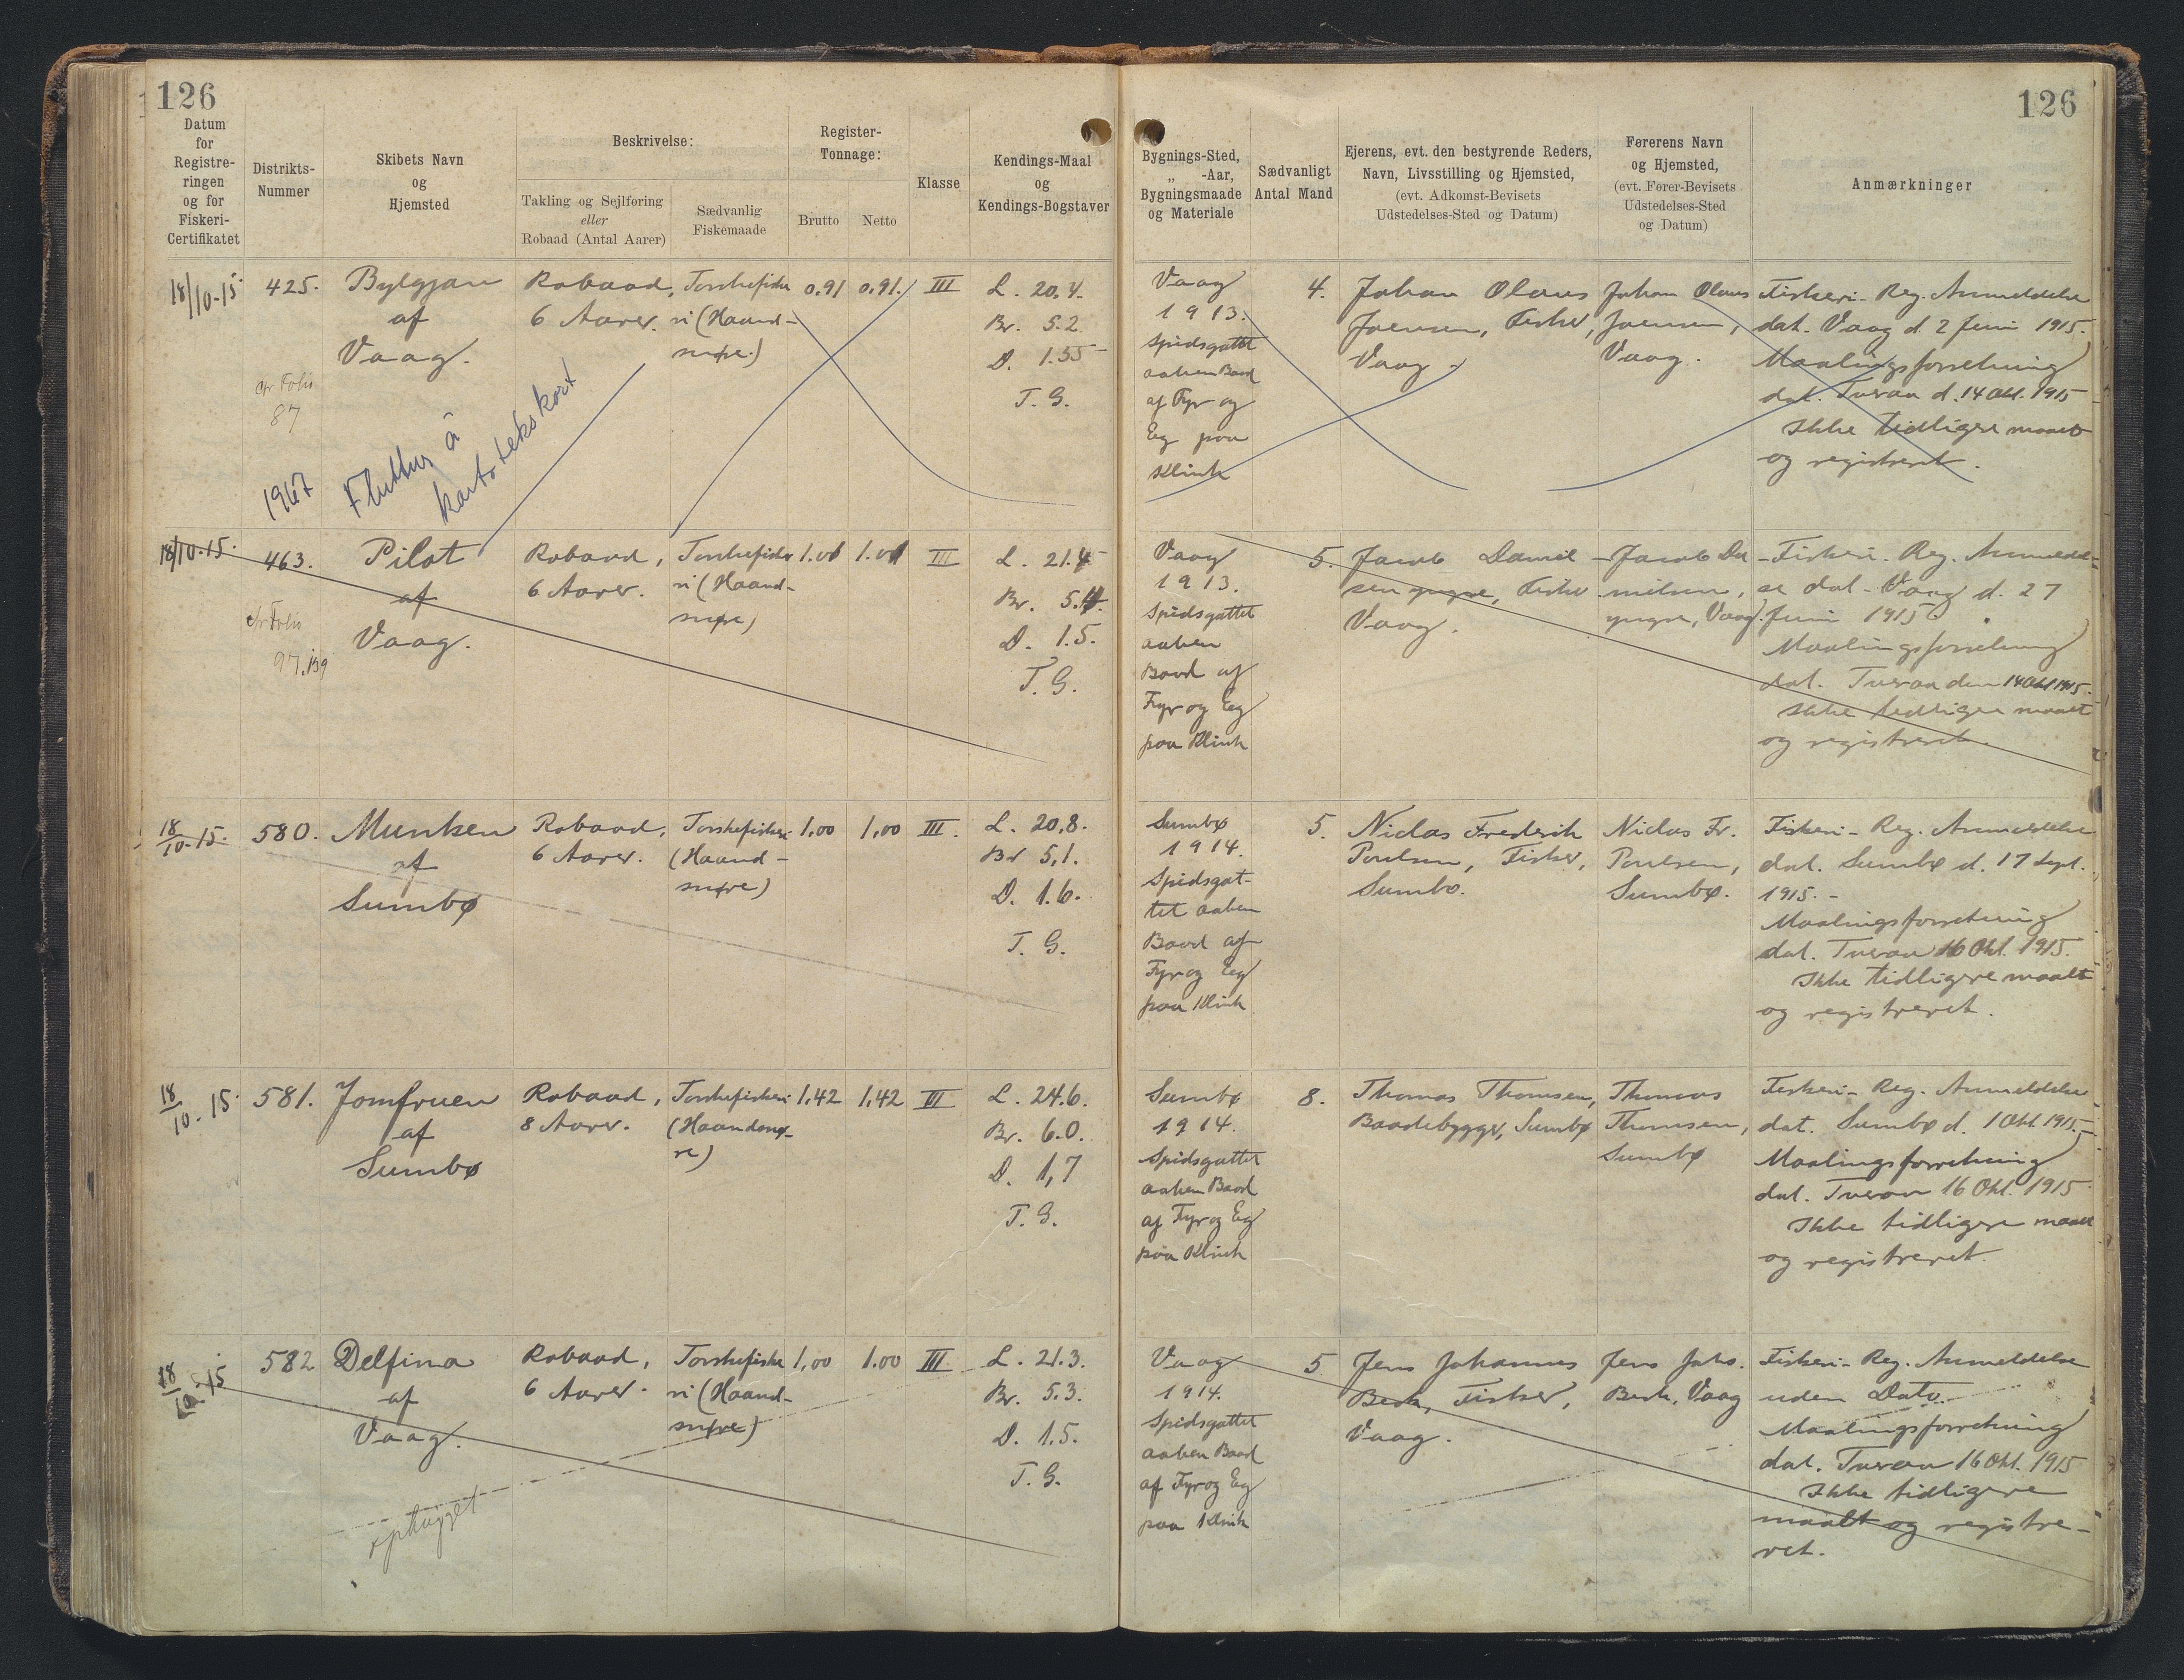 126
126
Datum
for
Registre-
ringen
og for
Fiskeri-
Certifikatet
Distrikts-
Nummer
Skibets Navn
og
Hjemsted
Beskrivelse:
Takling og Sejlføring
eller
Robaad (Antal Aarer)
Sædvanlig
Fiskemaade
Register-
Tonnage:
Brutto
Netto
Klasse
Kendings-Maal
og
Kendings-Bogstaver
Bygnings-Sted,
„ -Aar,
Bygningsmaade
og Materiale
Sædvanligt
Antal Mand
Ejerens, evt. den bestyrende Reders,
Navn, Livsstilling og Hjemsted,
(evt. Adkomst-Bevisets
Udstedelses-Sted og Datum)
Førerens Navn
og Hjemsted,
(evt. Fører-Bevisets
Udstedelses-Sted
og Datum)
Anmærkninger
18/10-15.
425.
Bylgjan
af
Vaag.
Robaad,
6 Aarer.
Torskefiske
ri (Haand-
snøre.)
0,91
0,91.
III
L. 20,4.
Br. 5.2
D. 1.55
T. G.
Vaag
1913.
Spidsgattet
aaben Baad
af Fyr og
Eg paa
Klink
4.
Johan Olaus
Joensen, Fisker,
Vaag.
Johan Olaus
Joensen,
Vaag.
Fiskeri-Reg. Anmeldelse
dat. Vaag d. 2 Juni 1915.
Maalingsforretning
dat. Tveraa d. 14 Okt. 1915
Ikke tidligere maalt
og registreret.
Folio
87
1967
Fluttur á
kartotekskort
18/10-15.
463.
Pilot
af
Vaag.
Robaad,
6 Aarer.
Torskefiske
ri (Haand-
snøre)
III
L. 21.4
Br.
D. 1.5.
T. G.
Vaag
1913.
Spidsgattet
aaben
Baad af
Fyr og Eg
paa Klink
5.
Jacob Daniel-
sen yngre, Fisker
Vaag.
Jacob Da-
nielsen,
yngre, Vaag.
Fiskeri-Reg. Anmeldel-
se dat. Vaag d. 27
Juni 1915
Maalingsforretning
dat. Tveraa den 14 Okt 1915.
Ikke tidligere maalt
og registreret.
Folio
97.
18/10-15.
580.
Munken
af
Sumbø
Robaad,
6 Aarer.
Torskefiskeri
(Haand-
snøre)
1,00
1,00
III.
L. 20,8.
Br 5,1.
D. 1.6.
T. G.
Sumbø
1914.
Spidsgat-
tet aaben
Baad af
Fyr og Eg
paa Klink
5.
Niclas Frederik
Poulsen, Fisker,
Sumbø.
Niclas Fr.
Poulsen,
Sumbø.
Fiskeri-Reg. Anmeldelse
dat. Sumbø d. 17 Sept.
1915.-
Maalingsforretning
dat. Tveraa 16 Okt. 1915.
Ikke tidligere maalt
og registreret.
18/10-15.
581.
Jomfruen
af
Sumbø
Robaad,
8 Aarer.
Torskefiskeri
(Haandsnø-
re)
1,42
1,42
III
L. 24.6.
Br. 6.0.
D. 1,7
T. G.
Sumbø
1914.
Spidsgattet
aaben Baad
af Fyr og Eg
paa Klink
8.
Thomas Thomsen,
Baadebygger, Sumbø
Thomas
Thomsen,
Sumbø
Fiskeri-Reg. Anmeldelse
dat. Sumbø d. 1 Okt. 1915.-
Maalingsforretning
dat. Tveraa 16 Okt. 1915
Ikke tidligere maalt
og registreret.
18/10-15
582
Delfina
af
Vaag.
Robaad,
6 Aarer.
Torskefiske
ri (Haand-
snøre)
1,00
1.00
III.
L. 21.3.
Br. 5.3.
D. 1.5.
T. G.
Vaag
1914.
Spidsgattet
aaben Baad
af Fyr og Eg
paa Klink
5
Jens Johannes
Beck, Fisker,
Vaag.
Jens Johs.
Beck, Vaag
Fiskeri-Reg. Anmeldelse
uden Dato.
Maalingsforretning
dat. Tveraa 16 Okt. 1915
Ikke tidligere
maalt og registre-
ret.
ophugget